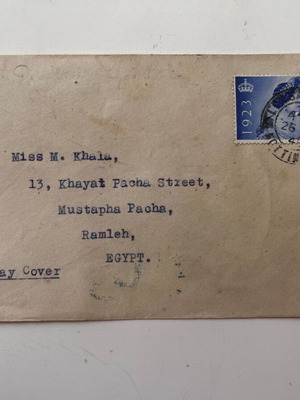 1923
26
Miss M. Khala,
13, Khayat Pacha Street,
Mustapha Pacha,
Ramleh,
EGYPT.
ay Cover